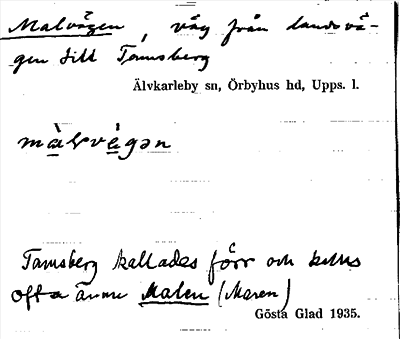 Malvägen, väg från landsvä-
gen till Tamsberg
Älvkarleby sn, Örbyhus hd, Upps. l.
màlvägən
Tamsberg kallades förr och kallas
ofta ännu Malen (Maren)
Gösta Glad 1935.